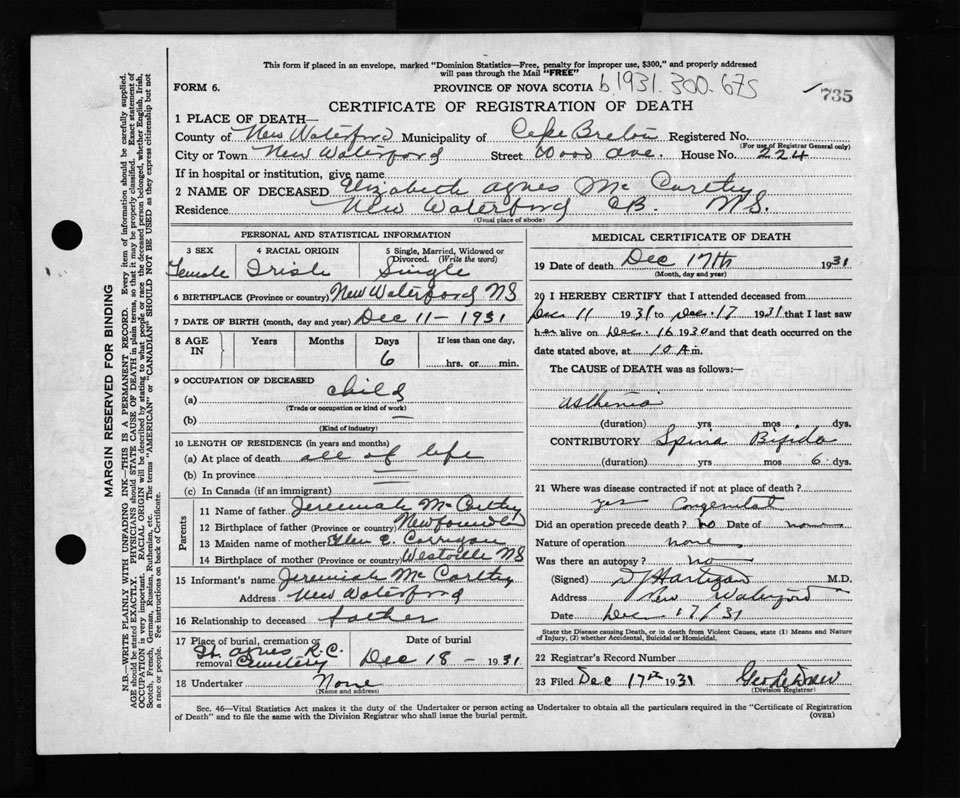 This form if placed in an envelope, marked "Dominion Statistics—Free, penalty for improper use, $300," and properly addressed
will pass through the Mail "FREE"
FORM 6.
PROVINCE OF NOVA SCOTIA b.1931.300.675
735
CERTIFICATE OF REGISTRATION OF DEATH
1 PLACE OF DEATH—
County of New Waterford Municipality of Cape Breton Registered No.
(For use of Registrar General only)
City or Town New Waterford Street Wood Ave. House No. 224
If in hospital or institution, give name
2 NAME OF DECEASED Elizabeth Agnes McCarthy
Residence New Waterford CB. N.S.
(Usual place of abode)
PERSONAL AND STATISTICAL INFORMATION
3 SEX Female
4 RACIAL ORIGIN Irish
5 Single, Married, Widowed or Divorced. (Write the word) Single
6 BIRTHPLACE (Province or country) New Waterford NS
7 DATE OF BIRTH (month, day and year) Dec 11 - 1931
8 AGE IN Years Months Days 6 If less than one day, hrs. or min.
9 OCCUPATION OF DECEASED
(a) child
(Trade or occupation or kind of work)
(b) —
(Kind of industry)
10 LENGTH OF RESIDENCE (in years and months)
(a) At place of death all of life
(b) In province —
(c) In Canada (if an immigrant)
Parents
11 Name of father Jeremiah McCarthy
12 Birthplace of father (Province or country) Newfoundland
13 Maiden name of mother E. Corrigan
14 Birthplace of mother (Province or country) Westville NS
15 Informant's name Jeremiah McCarthy
Address New Waterford
16 Relationship to deceased father
17 Place of burial, cremation or removal St. Agnes R.C. Cemetery
Date of burial Dec 18 - 1931
18 Undertaker None
(Name and address)
MEDICAL CERTIFICATE OF DEATH
19 Date of death Dec 17th 1931
(Month, day and year)
20 I HEREBY CERTIFY that I attended deceased from
Dec 11 1931 to Dec. 17 1931 that I last saw
her alive on Dec. 16 1930 and that death occurred on
date stated above, at 10 A m.
The CAUSE of DEATH was as follows:
Asthenia
(duration) yrs mos. dys.
CONTRIBUTORY Spina Bifida
(duration) yrs mos 6 dys.
21 Where was disease contracted if not at place of death?
yes Congenital
Did an operation precede death? no Date of none
Nature of operation none
Was there an autopsy? no
(Signed) Hartigan M.D.
Address New Waterford
Date Dec 17/31
State the Disease causing Death, or in death from Violent Causes, state (1) Means and Nature
of Injury, (2) whether Accidental, Suicidal or Homicidal.
22 Registrar's Record Number
23 Filed Dec 17th 1931 Geo
(Division Registrar)
Sec. 46—Vital Statistics Act makes it the duty of the Undertaker or person acting as Undertaker to obtain all the particulars required in the "Certificate of Registration
of Death" and to file the same with the Division Registrar who shall issue the burial permit.
(OVER)
MARGIN RESERVED FOR BINDING
N.B.—WRITE PLAINLY WITH UNFADING INK—THIS IS A PERMANENT RECORD. Every item of information should be carefully supplied.
AGE should be stated EXACTLY. PHYSICIANS should STATE CAUSE OF DEATH in plain terms, so that it may be properly classified. Exact statement of
OCCUPATION is very important. RACIAL ORIGIN will be described by stating to what people or race the deceased person belonged, whether English, Irish,
Scotch, French, German, Russian, Ruthenian, etc. The terms "AMERICAN" or "CANADIAN" SHOULD NOT BE USED as they express citizenship but not
a race or people. See instructions on back of Certificate.